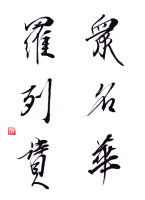 衆名華
羅列貴